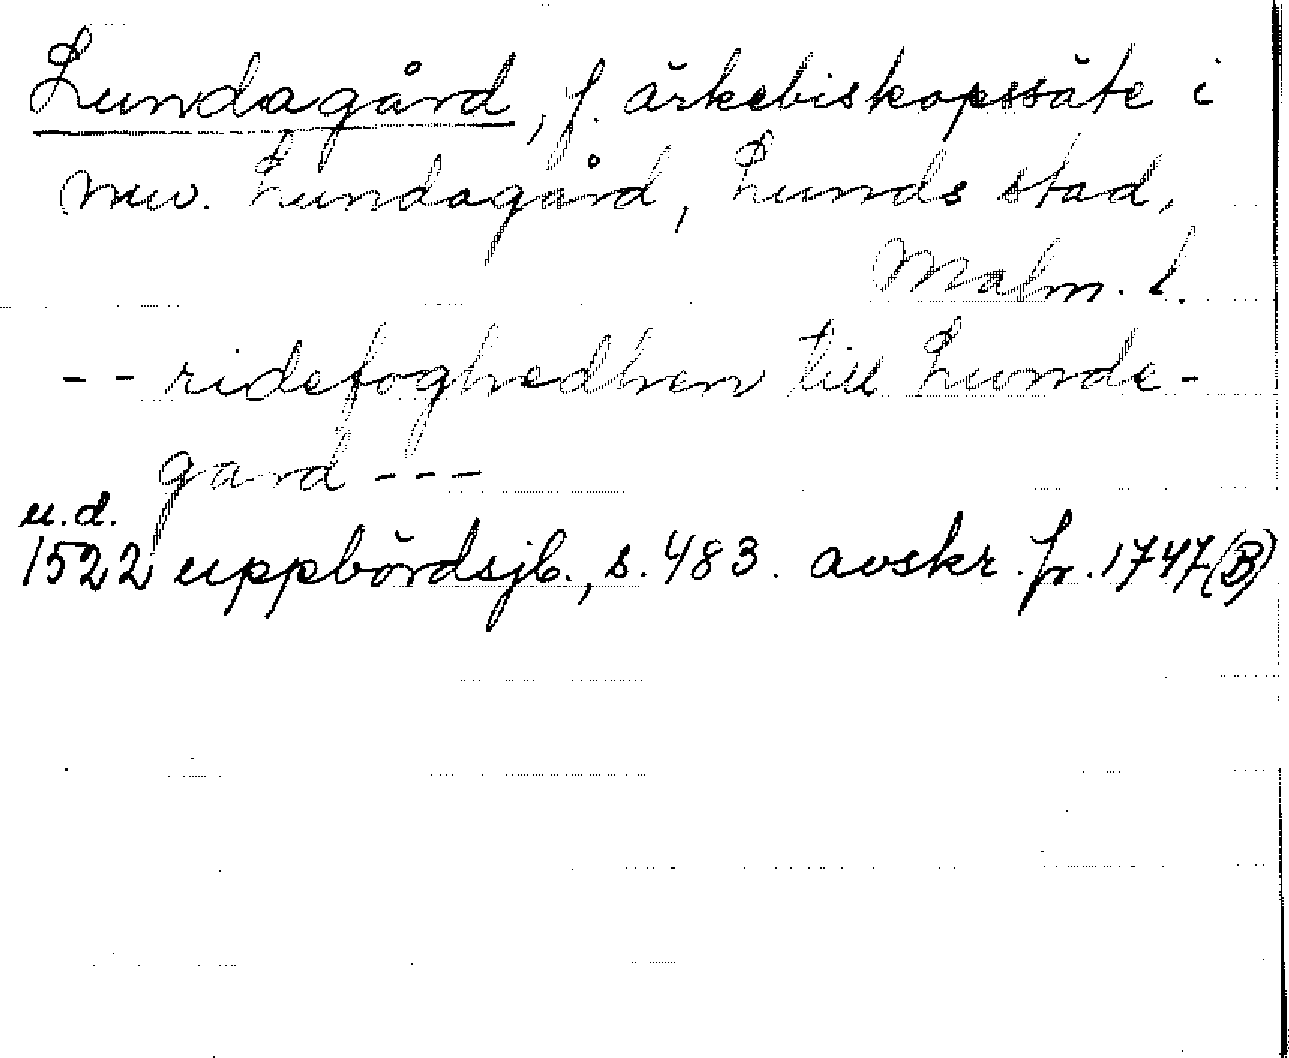 Lundagård, f. ärkebiskopssäte i
nuv. Lundagård, Lunds stad,
Malm. l.
-- ridefoghedhen till Lunde-
gard ---
u.d.
1522 uppbördsjb., s. 483. avskr. fr. 1747 (B)